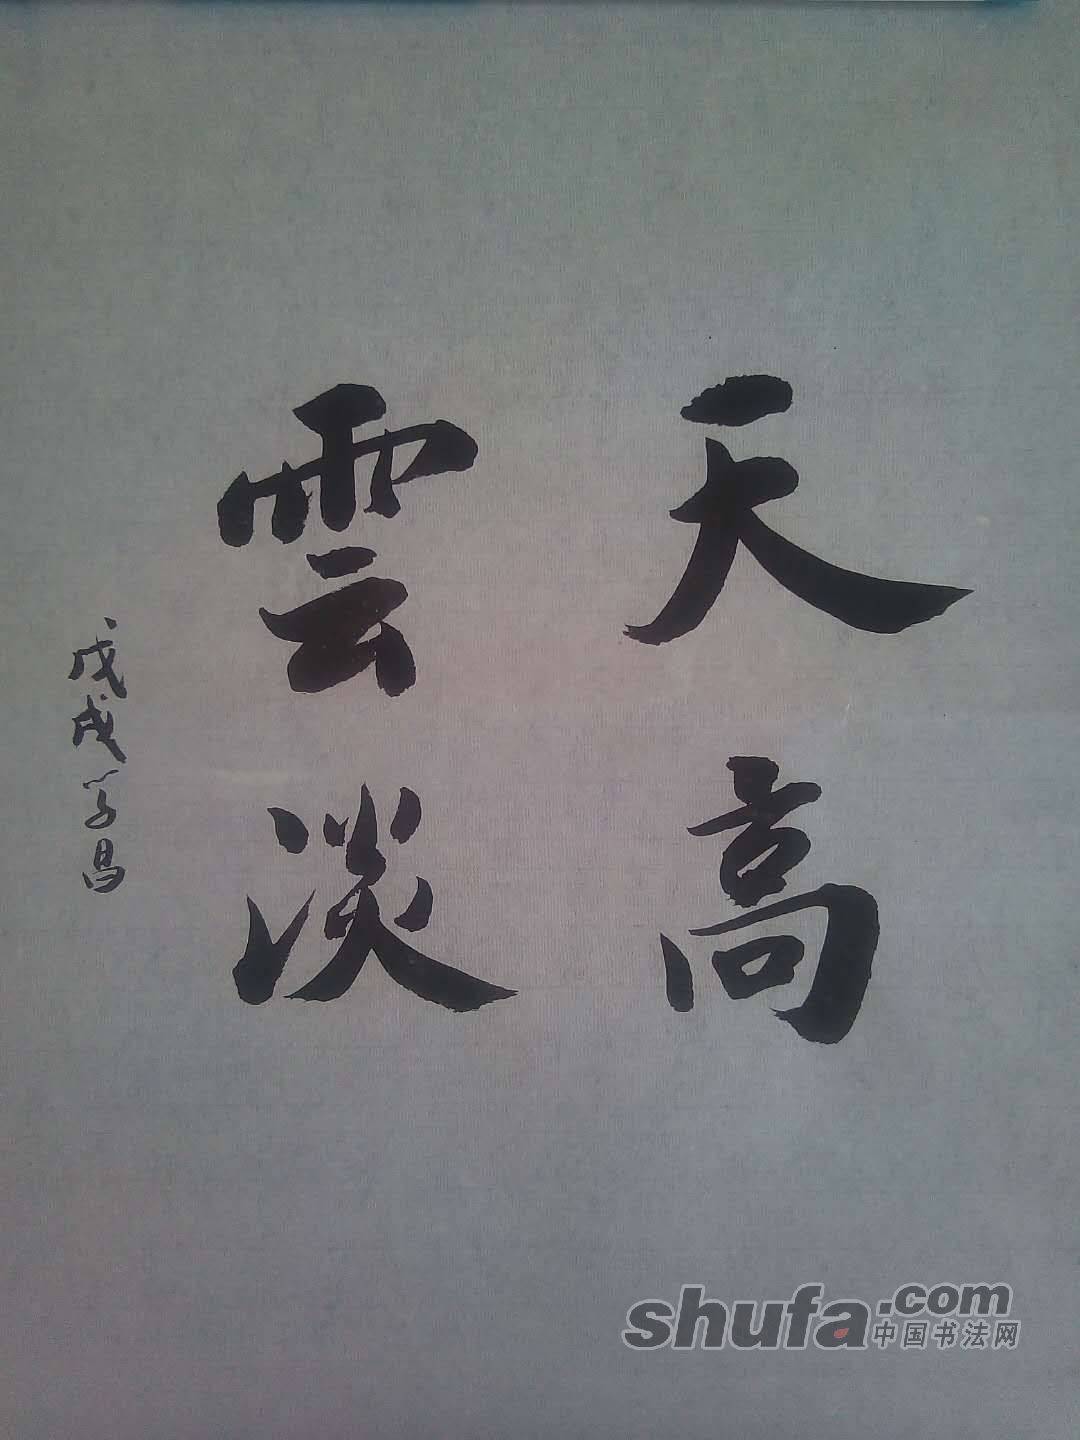 天高
雲淡
戊戌学昌
shufa.com
中国书法网